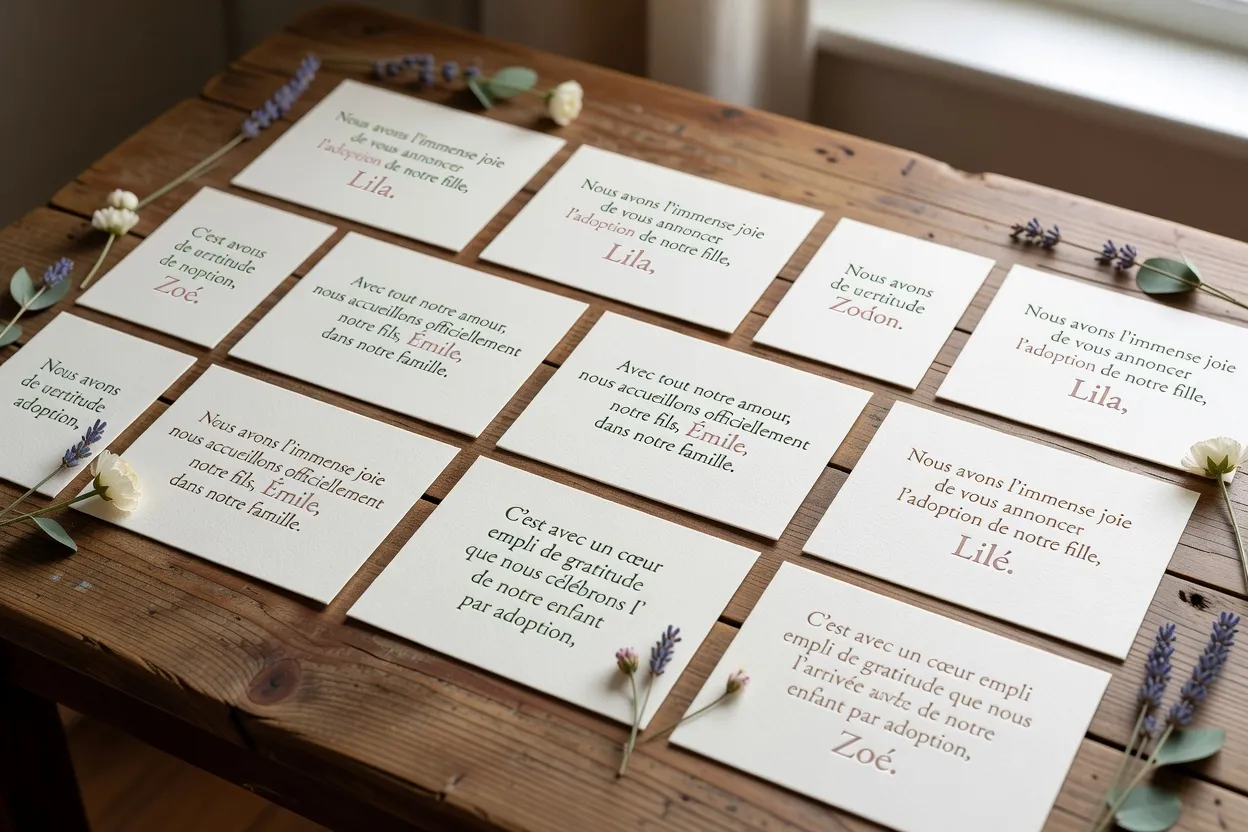 Nous avons l'immense joie
de vous annoncer
l'adoption de notre fille,
Lila.
Nous avons l'immense joie
de vous annoncer
l'adoption de notre fille,
Lila,
Nous avons
de vertitude
Zodon.
Nous avons l'immense joie
de vous annoncer
l'adoption de notre fille,
Lila,
C'est avons
de vertitude
de noption,
Zoé.
Avec tout notre amour,
nous accueillons officiellement
notre fils, Émile,
dans notre famille.
Avec tout notre amour,
nous accueillons officiellement
notre fils, Émile,
dans notre famille.
Nous avons l'immense joie
de vous annoncer
l'adoption de notre fille,
Lilé.
Nous avons
de vertitude
adoption,
Nous avons l'immense joie
nous accueillons officiellement
notre fils, Émile,
dans notre famille.
C'est avec un cœur
empli de gratitude
que nous célébrons l'
de notre enfant
par adoption,
C'est avec un cœur empli
empli de gratitude que nous
l'arrivée de notre
enfant par adoption,
Zoé.